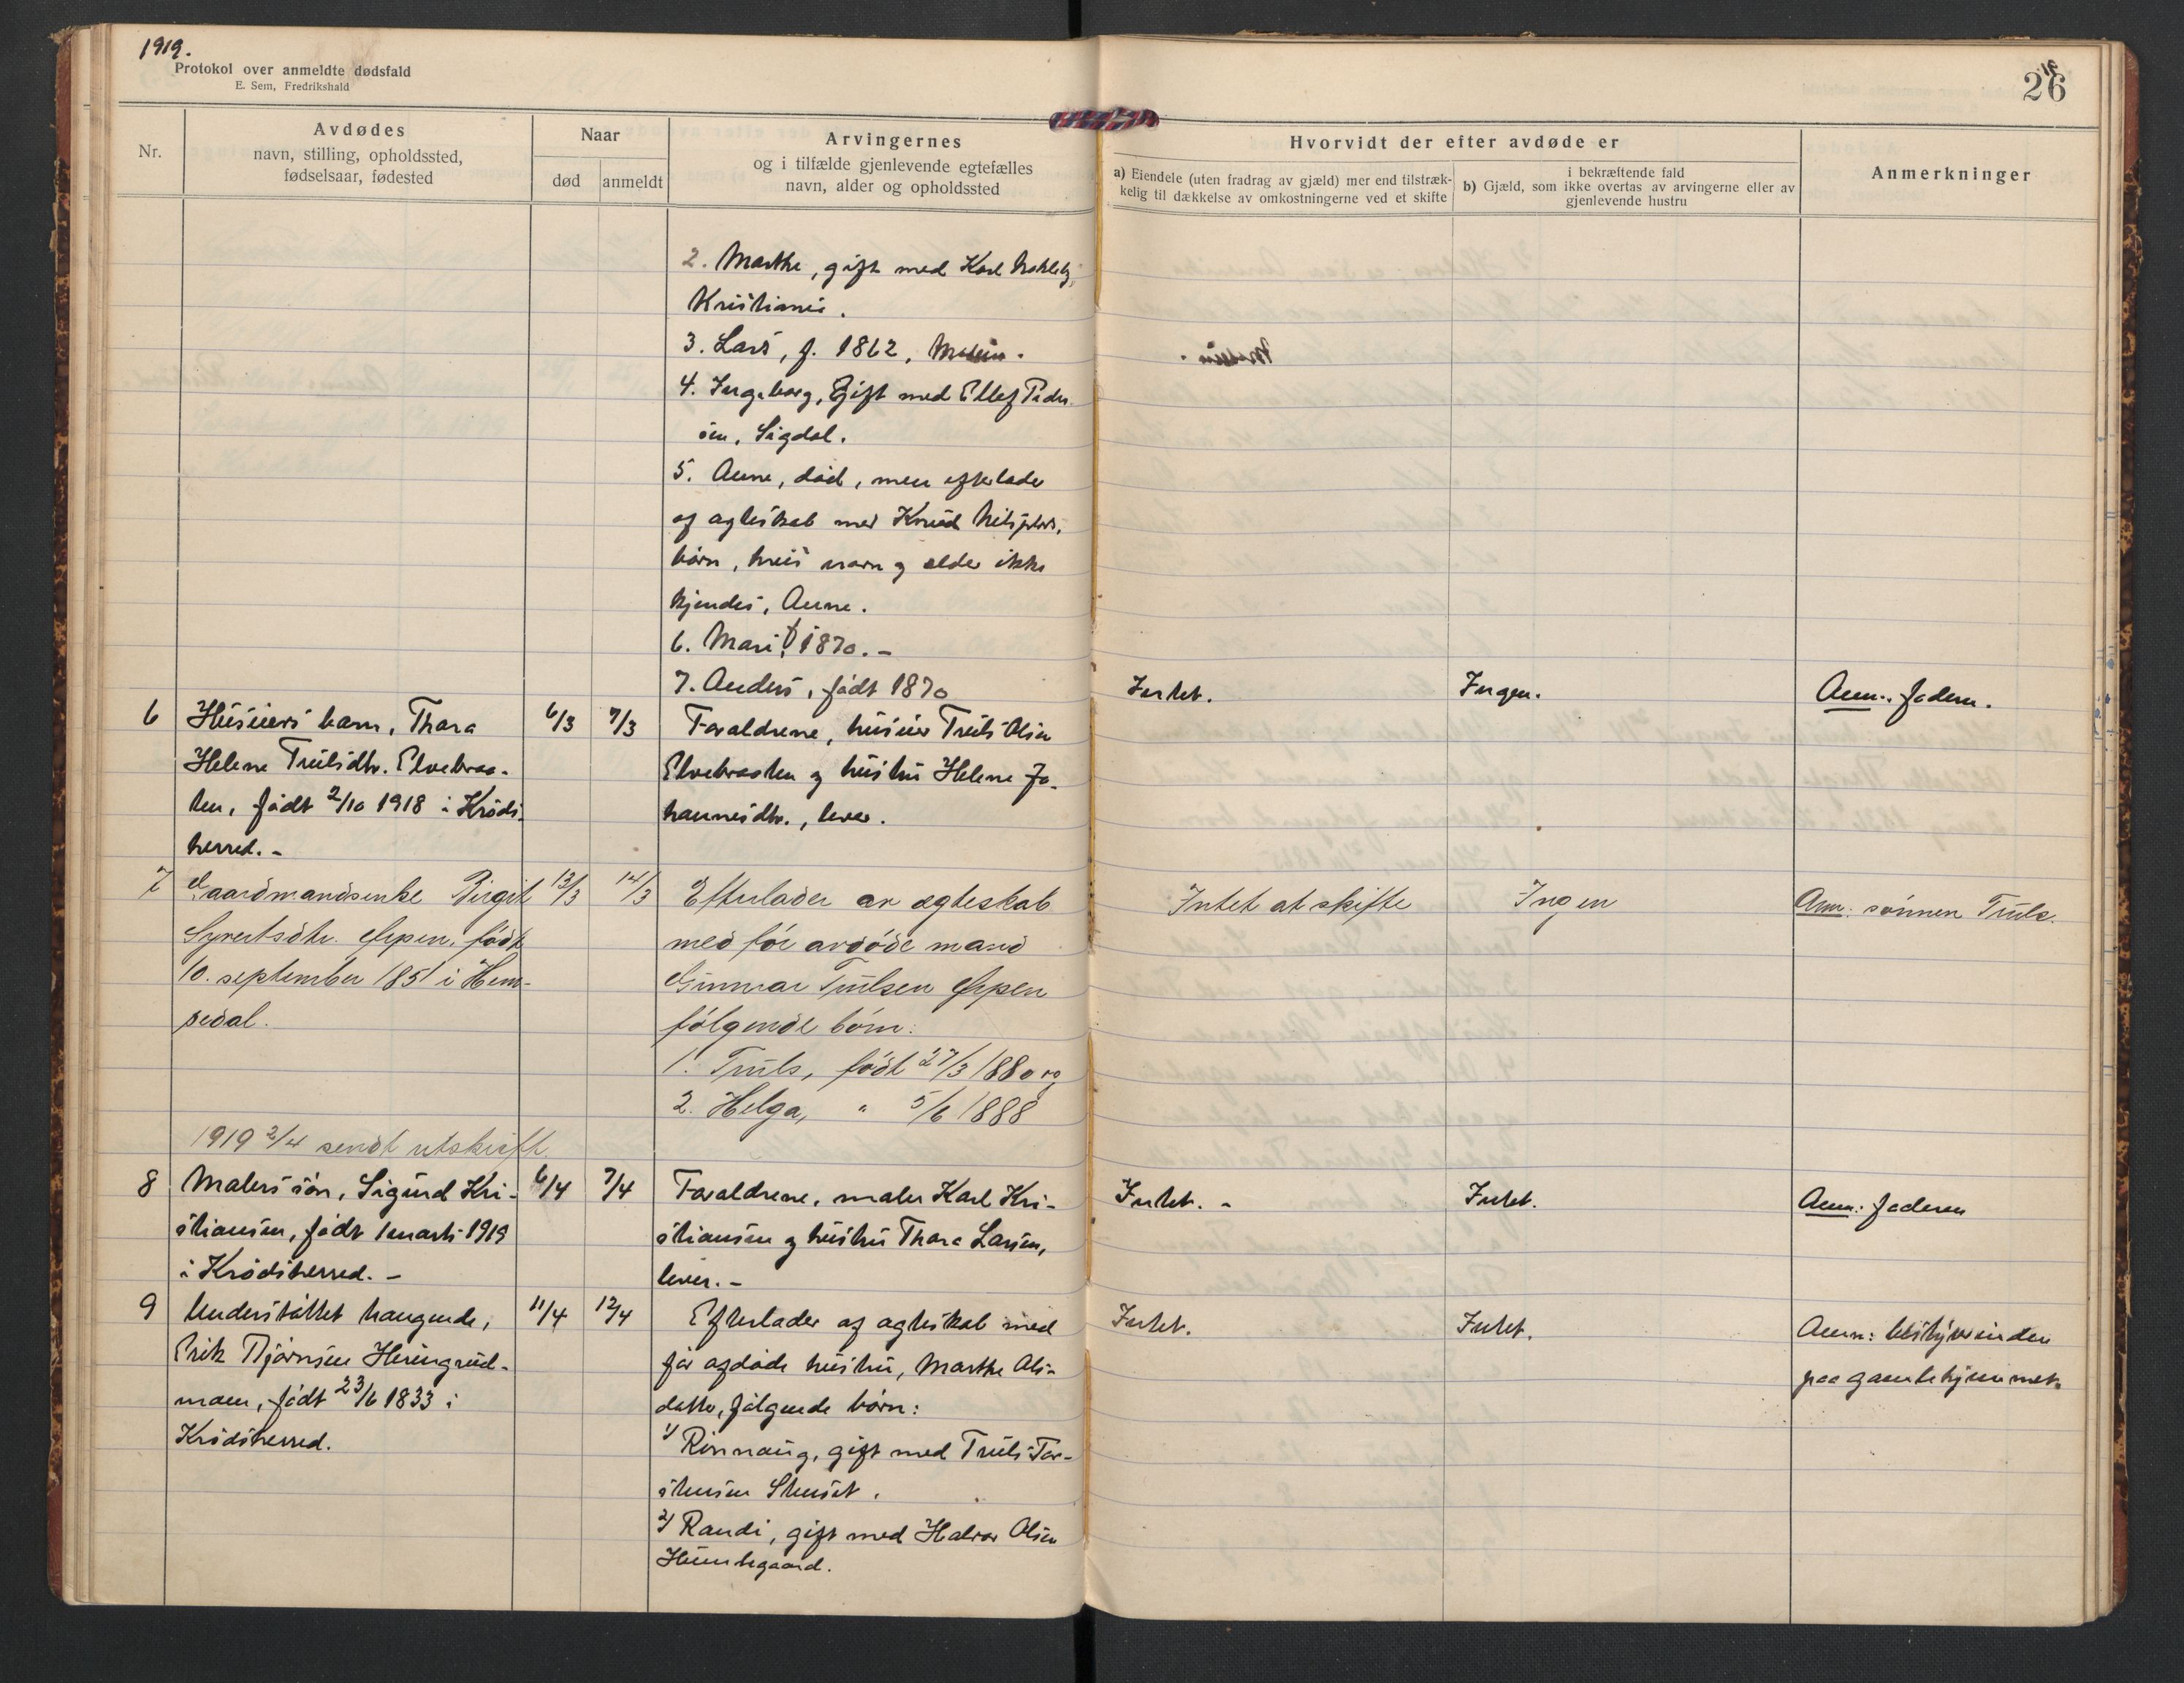 1919.
Protokol over anmeldte dødsfald
E. Sem, Fredrikshald
26
Nr.
Avdødes
navn, stilling, opholdssted,
fødselsaar, fødested
Naar
død
anmeldt
Arvingernes
og i tilfælde gjenlevende egtefælles
navn, alder og opholdssted
Hvorvidt der efter avdøde er
a) Eiendele (uten fradrag av gjæld) mer end tilstræk-
kelig til dækkelse av omkostningerne ved et skifte
i bekræftende fald
b) Gjæld, som ikke overtas av arvingerne eller av
gjenlevende hustru
Anmerkninger
2. Marthe, gift med Karl
Kristiania.
3. Lars, f. 1862,
4. Ingeborg, Gift med Ellef Peder-
sen, Sigdal.
5. Anne, død, men efterlader
af ægteskab med Knud
børn, hvis navn og alder ikke
kjendes, Anne.
6. Mari, f 1870. -
7. Anders, født 1870
6
Huseiers barn, Thora
Helene Trulsdtr. Elvebraa-
ten, født 2/10 1918 i Kröds-
herred. -
6/3
7/3
Forældrene, huseier Truls Olsen
Elvebraaten og hustru Helene Jo-
hannesdtr., lever.
Intet.
Ingen.
Anm.: faderen.
7
Gaardmandsenke Birgit
Syvertsdtr. Gupen, født
10. september 1851 i Hem-
sedal.
13/3
14/3
Efterlader av ægteskab
med før avdøde mand
Gunnar Trulsen Gupen
følgende börn:
1. Truls, född 27/3 1880 og
2. Helga, " 5/6 1888
Intet at skifte
Ingen
Anm: sønnen Truls.
1919 2/4 sendt utskrift.
8
Malers søn, Sigurd Kri-
stiansen, født 1 marts 1919
i Krødsherred. -
6/4
7/4
Forældrene, maler Karl Kri-
stiansen og hustru Thora Larsen,
lever. -
Intet. -
Intet.
Anm: faderen
9
Understøttet
Erik Bjørnsen Heringrud-
moen, født 23/6 1833 i
Krødsherred.
11/4
12/4
Efterlader af ægteskab med
før afdøde hustru, Marthe Ols-
datter, følgende børn:
1) Rønnaug, gift med Truls Tor-
stensen Stenset.
2) Randi, gift med Halvor Olsen
Intet.
Intet.
Anm: bestyrerinden
paa gamlehjemmet.